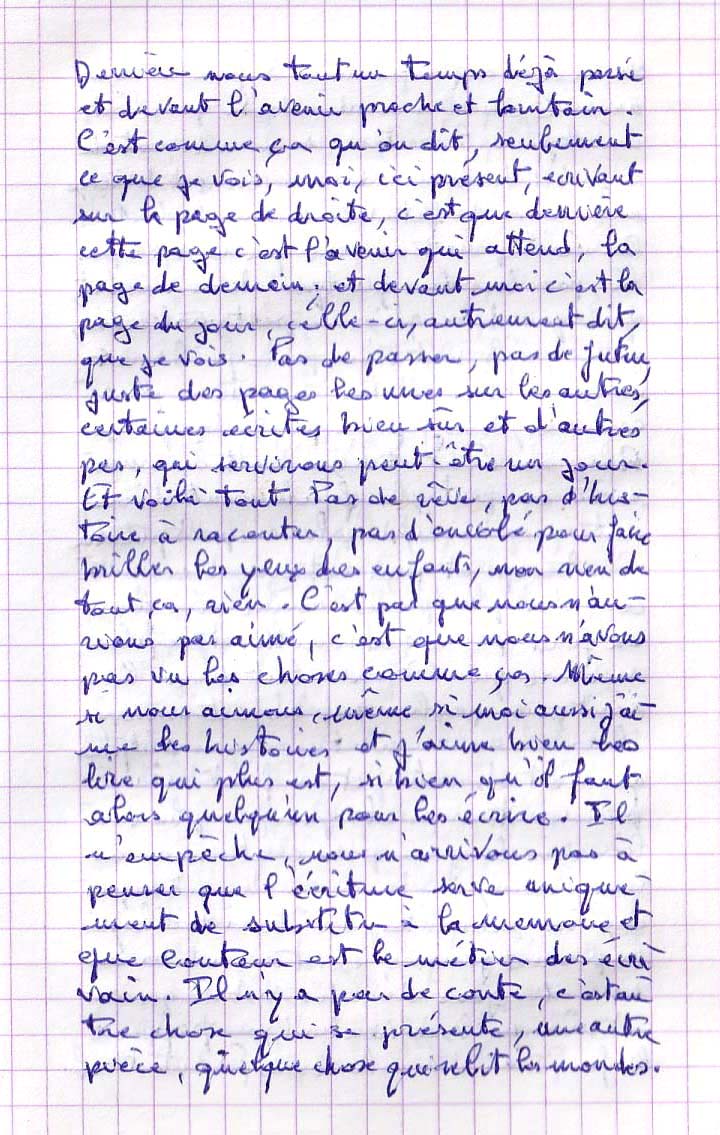 Derrière nous tout un temps déjà passé
et devant l'avenir proche et lointain.
C'est comme ça qu'on dit, seulement
ce que je vois, moi, ici présent, écrivant
sur la page de droite, c'est que derrière
cette page c'est l'avenir qui attend, la
page de demain ; et devant moi c'est la
page du jour, celle-ci, autrement dit,
que je vois. Pas de passer, pas de futur,
juste des pages les unes sur les autres,
certaines écrites bien sûr et d'autres
pas, qui serviront peut-être un jour.
Et voilà tout. Pas de rêve, pas d'his-
toire à raconter, pas d'oncle pour faire
briller les yeux des enfants, non rien de
tout ça, rien. C'est pas que nous n'au-
rions pas aimé, c'est que nous n'avons
pas vu les choses comme ça. Même
si nous aimons, même si moi aussi j'ai-
me les histoires et j'aime bien les
lire qui plus est, si bien qu'il faut
alors quelqu'un pour les écrire. Il
n'empêche, nous n'arrivons pas à
penser que l'écriture serve unique-
ment de substitu à la mémoire et
que conteur est le métier des écri
vain. Il n'y a pas de conte, c'est au
tre chose qui se présente, une autre
pièce, quelque chose qui relit les mondes.